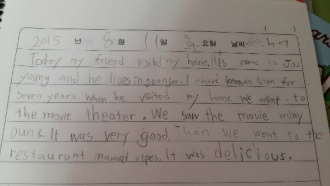 2015 년 8 월 11 일 요일 날씨 hot
Today my friend visited my house. His name is Joo
young and he lives in I have known him for
seven years. when he visited my house we went to
the movie theater. We saw the movie mini
ouns. It was very good Then we went to the
restaurant named It was delicious.